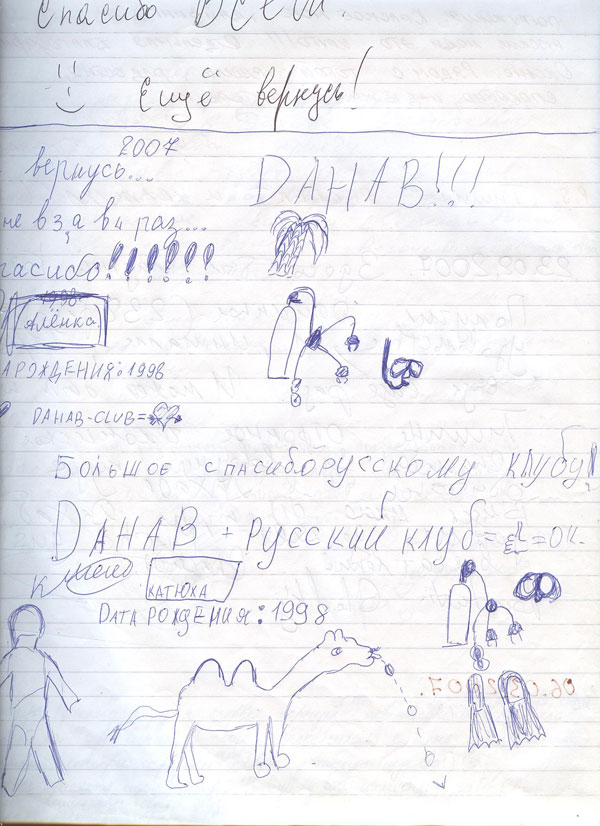 Спасибо ВСЕМ
Ещё вернусь!
2007
вернусь...
DAHAB!!!
не в 3, а в 4 раз...
пасибо!!!!!!
1998
Алёнка
А РОЖДЕНИЯ: 1998
DAHAB-CLUB=
БОЛЬШОЕ СПАСИБО РУССКОМУ КЛУБУ!
DAHAB + РУССКИЙ КЛУБ = = OK.
КАТЮХА
DАТА РОЖДЕНИЯ: 1998